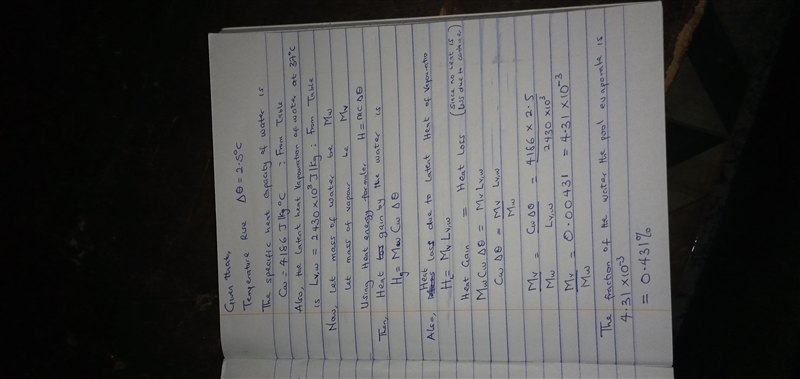 Given that,
Temperature Rise Δθ = 2.5°C
The specific heat capacity of water is
Cw = 4186 J/kg°C : From Table
Also, the latent heat vaporation of water at 37°C
is Lv,w = 2430 x10³ J/kg : From Table
Now, let mass of water be Mw
let mass of vapour be Mv
Using Heat energy formula H = mcΔθ
Then, Heat gain by the water is
Hg = Mw Cw Δθ
Also, Heat Loss due to Latent Heat of Vaporatio
HL = Mv Lv,w
Heat Gain = Heat Loss (since no heat is
loss due to continue)
Mw Cw Δθ = Mv Lv,w
Cw Δθ = Mv Lv,w
Mw
Mv = Cw Δθ = 4186 x 2.5
Mw Lv,w 2430 x10³
Mv = 0.00431 = 4.31 x10⁻³
Mw
The fraction of the water the pool evaporate is
4.31 x10⁻³
= 0.431%